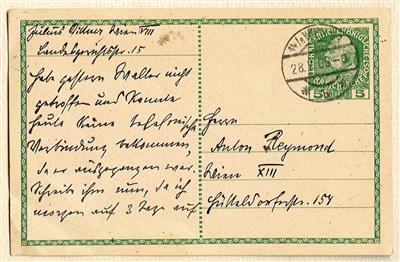 Julius Bittner Wien VIII
Landesgerichtsstr. 15
Habe gestern Walter nicht
getroffen und konnte
heute keine telefonische
Verbindung bekommen,
da er ausgegangen war.
Schreibe ihm nun, da ich
morgen auf 3 Tage auf
Herrn
Anton Reymond
Wien XIII
Hütteldorferstr. 154
28.
5 5